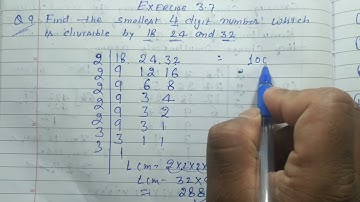 Exercise 3.7
Q 9. Find the smallest 4 digit number which
is divisible by 18 24 and 32
2 | 18. 24. 32 = 100
2 | 9 12 16
2 | 9 6 8
2 | 9 3 4
2 | 9 3 2
3 | 9 3 1
3 | 3 1 1
1
Lcm = 2×2×2×
Lcm = 32×9
= 288